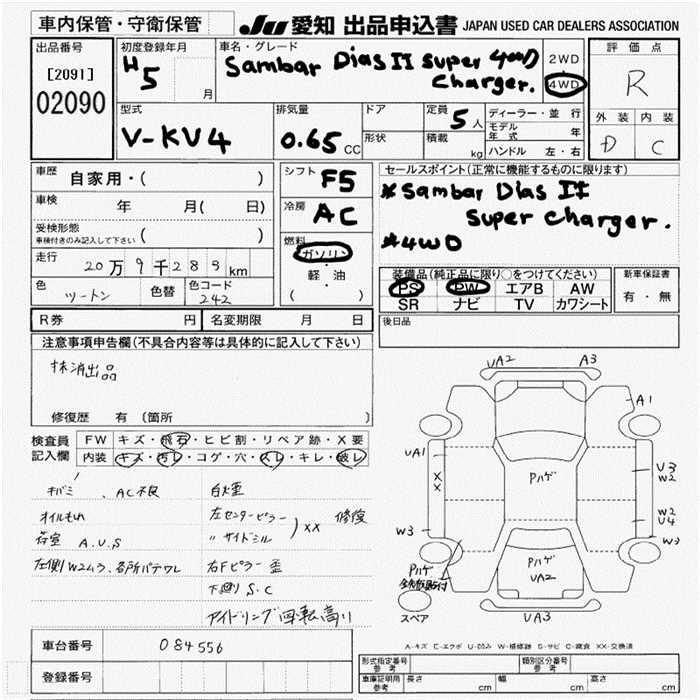 車内保管・守衛保管
JU 愛知 出品申込書 JAPAN USED CAR DEALERS ASSOCIATION
出品番号
[2091]
02090
初度登録年月
H5
月
車名・グレード
Sambar Dias II super 4WD
charger.
2WD
4WD
評価点
R
外装 内装
D C
型式
V-KV4
排気量
0.65 CC
ドア
形状
定員
5人
積載
kg
ディーラー・並行
モデル年式 年
ハンドル 左・右
車歴
自家用・( )
車検
年 月( 日)
受検形態
車検付きのみ記入して下さい ( )
走行
20万9千289km
色
ツートン
色替
色コード
242
シフト
F5
冷房
AC
燃料
ガソリン
・
軽油
( )
セールスポイント(正常に機能するものに限ります)
*Sambar Dias II
super charger.
*4WD
装備品(純正品に限り○をつけてください)
PS PW エアB AW
SR ナビ TV カワシート
新車保証書
有・無
R券 円
名変期限 月 日
後日品
注意事項申告欄(不具合内容等は具体的に記入して下さい)
抹消出品
修復歴 有 〔箇所
検査員
記入欄
FW キズ・飛石・ヒビ割・リペア跡・X要
内装 キズ・汚レ・コゲ・穴・スレ・キレ・破レ
キバミ、AC不良
オイルもれ
荷室 A.U.S
左側W2ムラ、各所パテワレ
白煙
左センターピラー
〃サイドシル
)XX 修復
右Fピラー歪
下廻りS.C
アイドリング回転高い
UA2 A3
A1
UA1
XX
W3
Pハゲ
U3
W2
W2
U4
W3
Pハゲ
UA2
Pハゲ
スペア
UA3
A-キズ E-エクボ U-凹み W-補修跡 S-サビ C-腐食 XX-交換済
車台番号
084556
登録番号
型式指定番号
参考
類別区分番号
参考
車庫証明用
参考
長さ cm
幅 cm
高さ cm